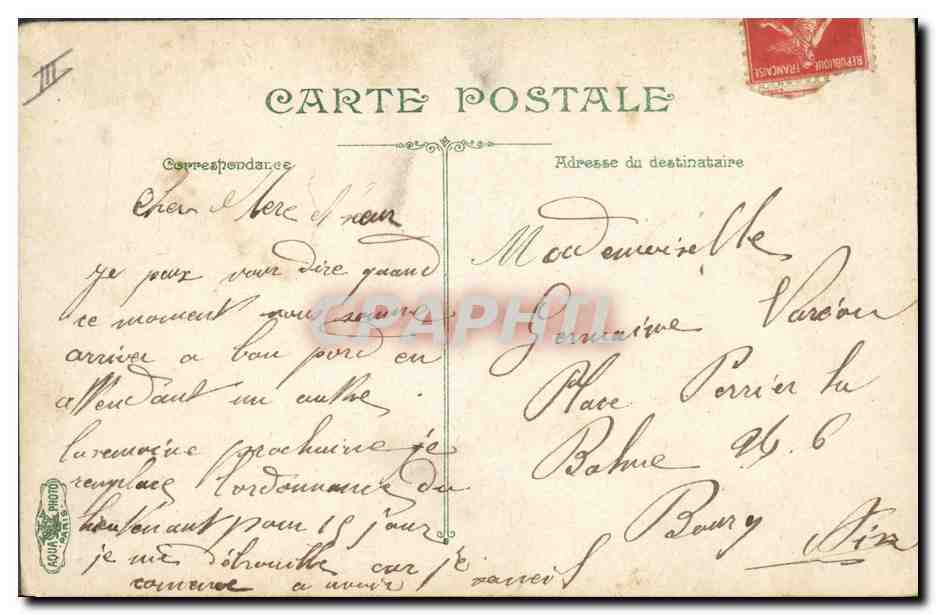 III
RÉPUBLIQUE FRANÇAISE
CARTE POSTALE
Correspondance
Adresse du destinataire
Cher Mere et sœur
je peux vous dire quand
ce moment nous somme
arriver a bon pord en
attendant un autre.
la semaine prochaine je
remplace l'ordonnance du
lieutenant pour 15 jour
je me débrouille car je
comence a avoir
Mademoiselle
Germaine
Place Perrier la
Balme 6
Bourg
Ain
CPAPHTI
AQUA PHOTO
PARIS